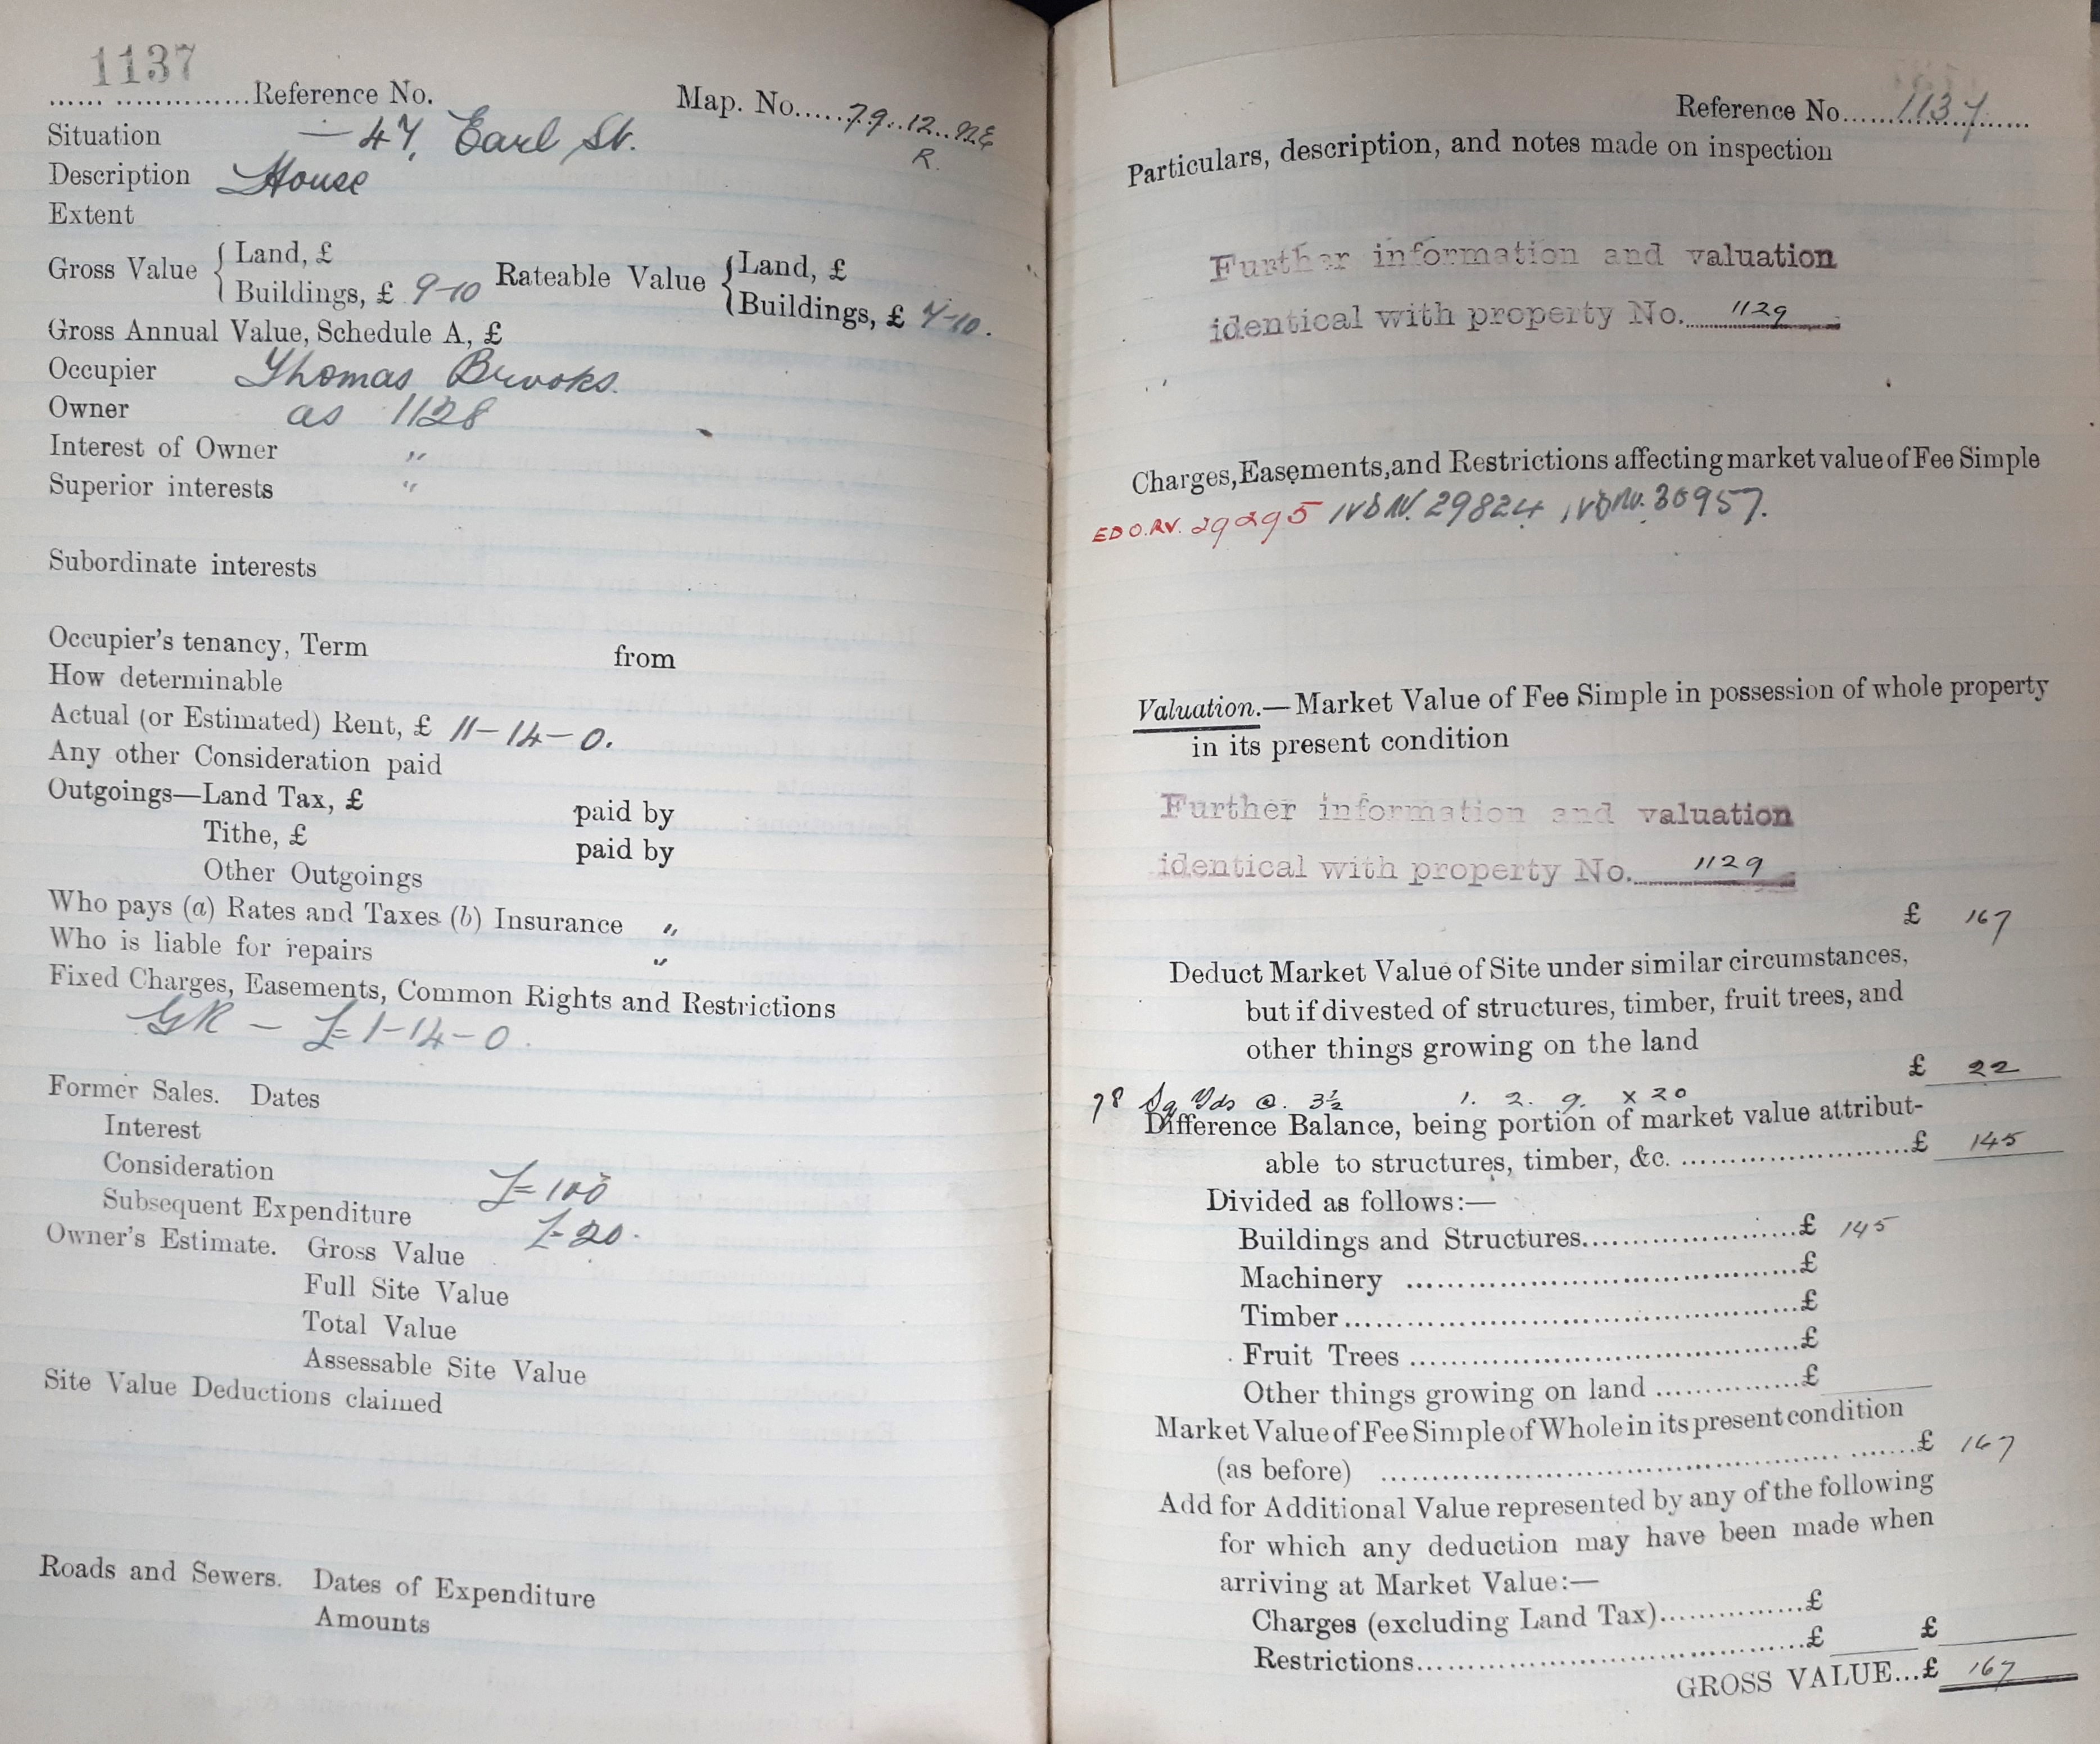 1137
...... ..............Reference No.
Map. No.....79..12..NE
R.
Situation — 47, Earl St.
Description House
Extent
Gross Value { Land, £
Buildings, £ 9-10
Rateable Value { Land, £
Buildings, £ 7-10.
Gross Annual Value, Schedule A, £
Occupier Thomas Brooks.
Owner as 1128
Interest of Owner "
Superior interests "
Subordinate interests
Occupier's tenancy, Term from
How determinable
Actual (or Estimated) Rent, £ 11-14-0.
Any other Consideration paid
Outgoings—Land Tax, £ paid by
Tithe, £ paid by
Other Outgoings
Who pays (a) Rates and Taxes (b) Insurance "
Who is liable for repairs "
Fixed Charges, Easements, Common Rights and Restrictions
GR — £1-14-0.
Former Sales. Dates
Interest
Consideration £100
Subsequent Expenditure £20.
Owner's Estimate. Gross Value
Full Site Value
Total Value
Assessable Site Value
Site Value Deductions claimed
Roads and Sewers. Dates of Expenditure
Amounts
Reference No......1137......
Particulars, description, and notes made on inspection
Further information and valuation
identical with property No. 1129
Charges, Easements, and Restrictions affecting market value of Fee Simple
EDO.RV. 29295 29824 30957.
Valuation.—Market Value of Fee Simple in possession of whole property
in its present condition
Further information and valuation
identical with property No. 1129
£ 167
Deduct Market Value of Site under similar circumstances,
but if divested of structures, timber, fruit trees, and
other things growing on the land
£ 22
78 Sq Yds @. 3½ 1. 2. 9. x 20
Difference Balance, being portion of market value attribut-
able to structures, timber, &c. ..........................£ 145
Divided as follows:—
Buildings and Structures........................£ 145
Machinery .............................................£
Timber....................................................£
Fruit Trees .............................................£
Other things growing on land ................£
Market Value of Fee Simple of Whole in its present condition
(as before) ..................................................... .......£ 167
Add for Additional Value represented by any of the following
for which any deduction may have been made when
arriving at Market Value:—
Charges (excluding Land Tax)................£
Restrictions.............................................£ £
GROSS VALUE...£ 167